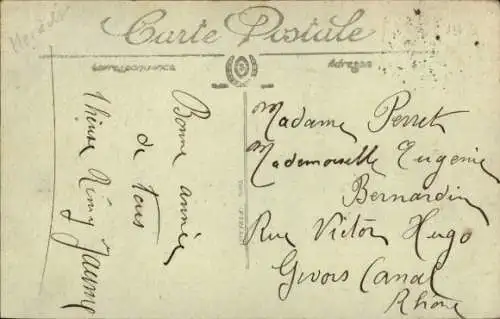 Carte Postale
Correspondance
Adresse
Bonne année
de tous
Rémy Jayme
Madame Perret
Mademoiselle Eugenie
Bernardin
Rue Victor Hugo
Givors Canal
Rhône